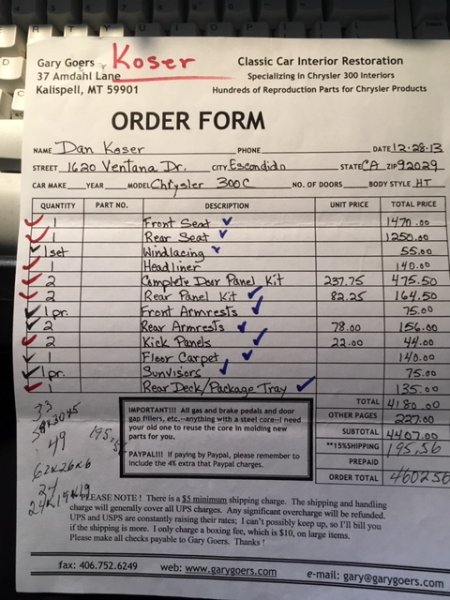 Gary Goers Koser Classic Car Interior Restoration
37 Amdahl Lane Specializing in Chrysler 300 Interiors
Kalispell, MT 59901 Hundreds of Reproduction Parts for Chrysler Products
ORDER FORM
NAME Dan Koser PHONE DATE 12-28-13
STREET 1620 Ventana Dr. CITY Escondido STATE CA ZIP 92029
CAR MAKE YEAR MODEL Chrysler 300C NO. OF DOORS BODY STYLE HT
QUANTITY PART NO. DESCRIPTION UNIT PRICE TOTAL PRICE
1 Front Seat 1470.00
1 Rear Seat 1250.00
1 set Windlacing 55.00
1 Headliner 140.00
2 Complete Door Panel Kit 237.75 475.50
2 Rear Panel Kit 82.25 164.50
1 pr. Front Armrests 75.00
2 Rear Armrests 78.00 156.00
2 Kick Panels 22.00 44.00
1 Floor Carpet 140.00
1 pr. Sunvisors 75.00
1 Rear Deck/Package Tray 135.00
TOTAL 4180.00
OTHER PAGES 227.00
SUBTOTAL 4407.00
**15%SHIPPING 195,56
PREPAID
ORDER TOTAL 460256
IMPORTANT!!! All gas and brake pedals and door
gap fillers, etc.--anything with a steel core--I need
your old one to reuse the core in molding new
parts for you.
PAYPAL!!! If paying by Paypal, please remember
to include the 4% extra that Paypal charges.
33
49
195,
62x26x6
34
PLEASE NOTE! There is a $5 minimum shipping charge. The shipping and handling
charge will generally cover all UPS charges. Any significant overcharge will be refunded.
UPS and USPS are constantly raising their rates; I can't possibly keep up, so I'll bill you
if the shipping is more. I only charge a boxing fee, which is $10, on large items.
Please make all checks payable to Gary Goers. Thanks !
fax: 406.752.6249 web: www.garygoers.com e-mail: gary@garygoers.com